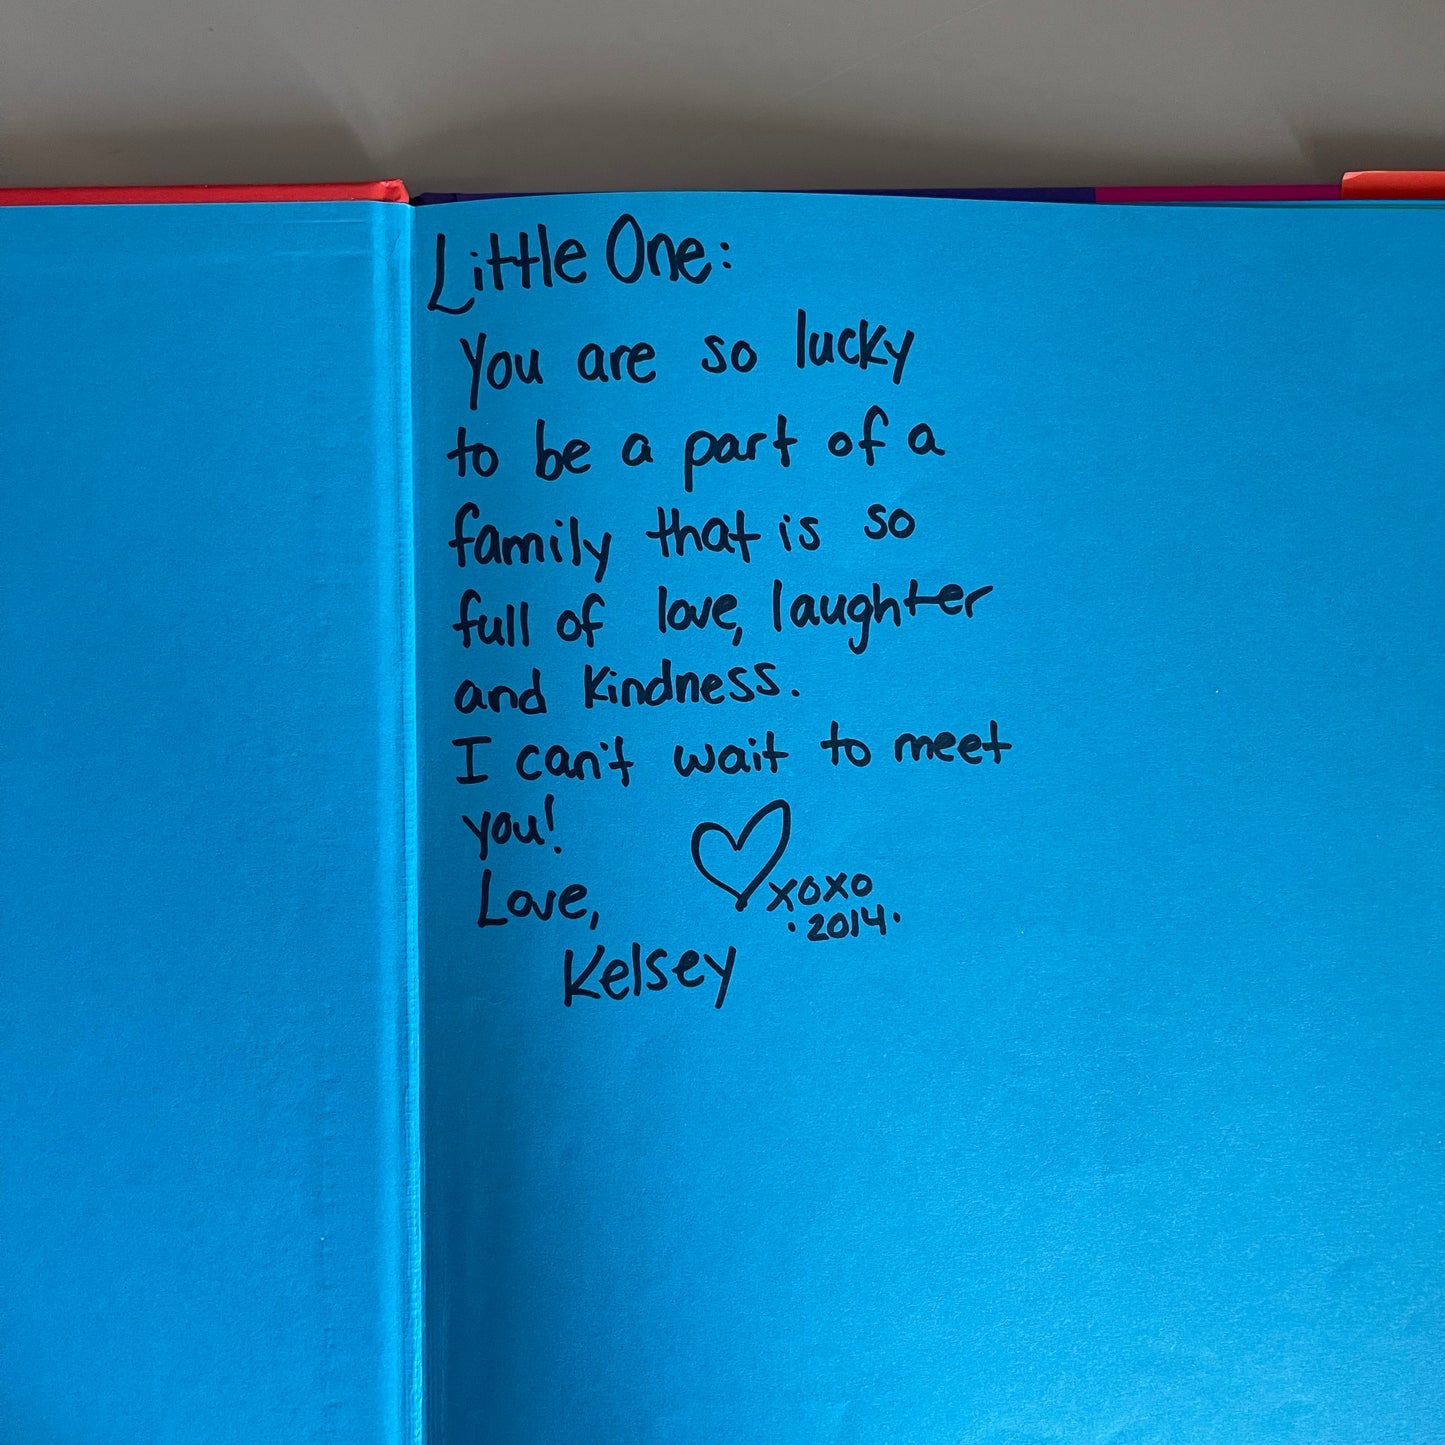 Little One:
You are so lucky
to be a part of a
family that is so
full of love, laughter
and kindness.
I can't wait to meet
you!
xoxo
Love,
·2014·
Kelsey